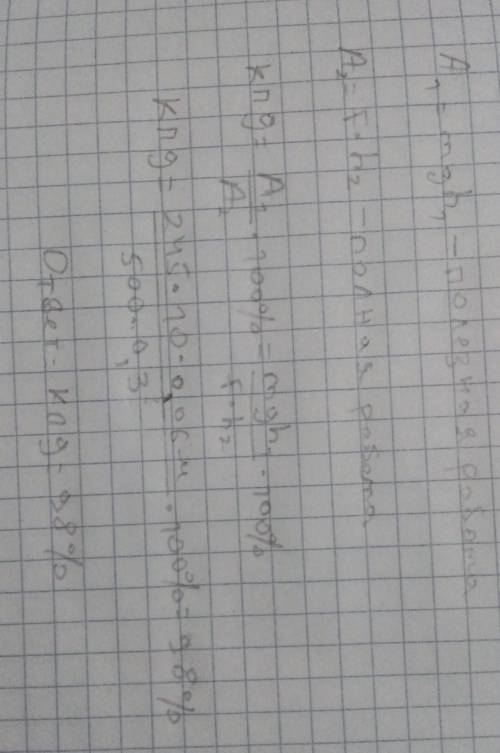 A₁ = mgh₁ – полезная работа
A₂ = F · h₂ – полная работа
КПД = A₁/A₂ · 100% = mgh₁/F·h₂ · 100%
КПД = 245·10·0,06м/500·0,3 · 100% = 98%
Ответ. КПД = 98%